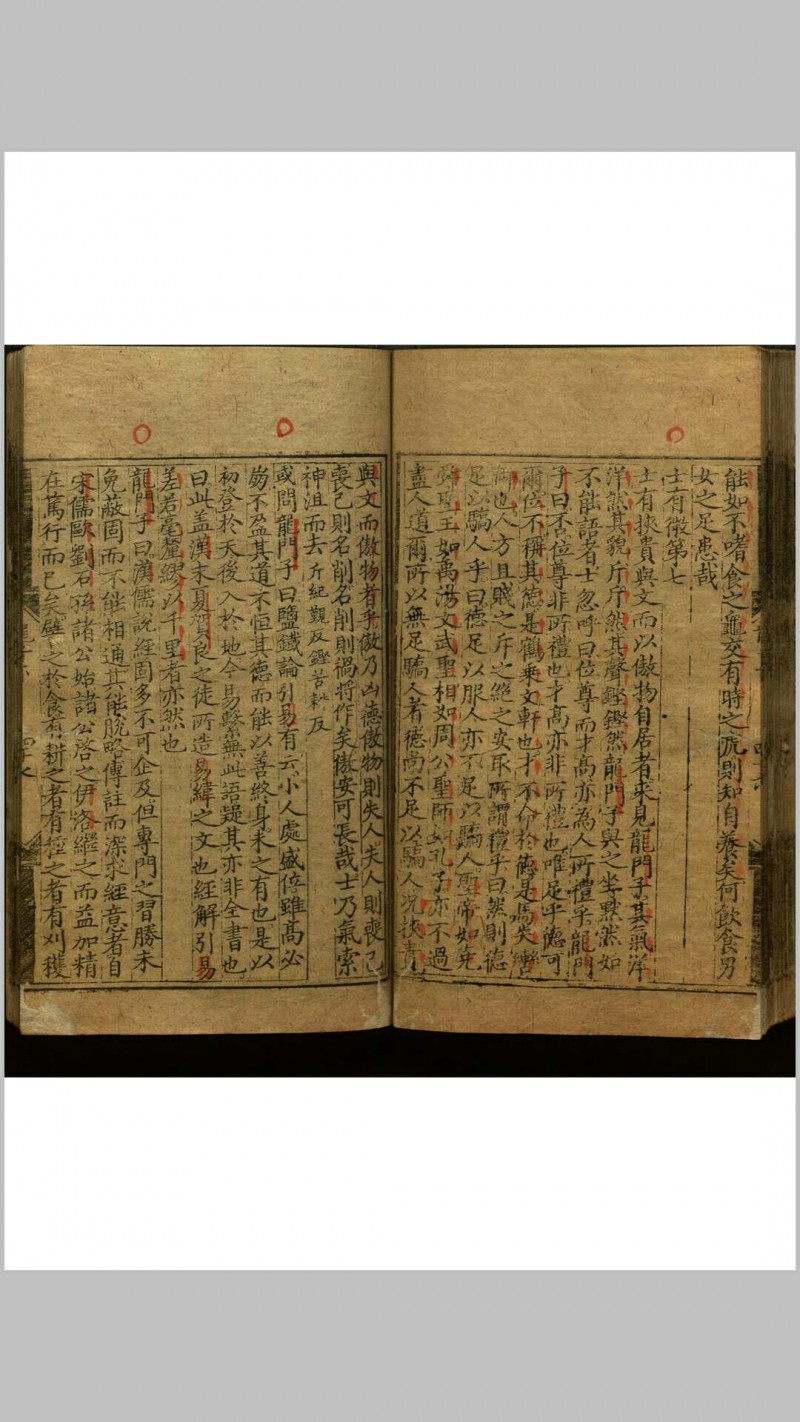 能如不嗜食之龜交有時之虎則知自養矣何飲食男
女之足患哉
士有徵第七
士有挾貴與文而以傲物自居者來見龍門子其氣洋
洋然其貌斤斤然其聲鏗鏗然龍門子與之坐默然如
不能語者士忽呼曰位尊而才高亦為人所禮乎龍門
子曰否位尊非所禮也才高亦非所禮也唯足乎德可
爾位不稱其德是鶴乘文軒也才不命於德是馬失轡
御也人方且賤之斥之絕之安取所謂禮乎曰然則德
足以驕人乎曰德足以服人亦不足以驕人聖帝如堯
舜聖王如禹湯文武聖相如周公聖師如孔子亦不過
盡人道爾所以無足驕人者德尚不足以驕人況挾貴
與文而傲物者乎傲乃凶德傲物則失人失人則喪己
喪己則名削名削則禍將作矣傲安可長哉士乃氣索
神沮而去 斤紀覲反鏗苦耕反
或問龍門子曰鹽鐵論引易有云小人處盛位雖高必
崩不盈其道不恒其德而能以善終身未之有也是以
初登於天後入於地今易繫無此語踶其亦非全書也
曰此蓋漢末易賀良之徒所造易緯之文也經解引易
差若毫釐繆以千里者亦然也
龍門子曰漢儒說經固多不可企及但專門之習勝未
免蔽固而不能相通其能脫略傳註而深求經意者自
宋儒歐劉石孫諸公始諸公啓之伊洛繼之而益加精
在篤行而已矣譬之於食有耕之者有種之者有刈穫